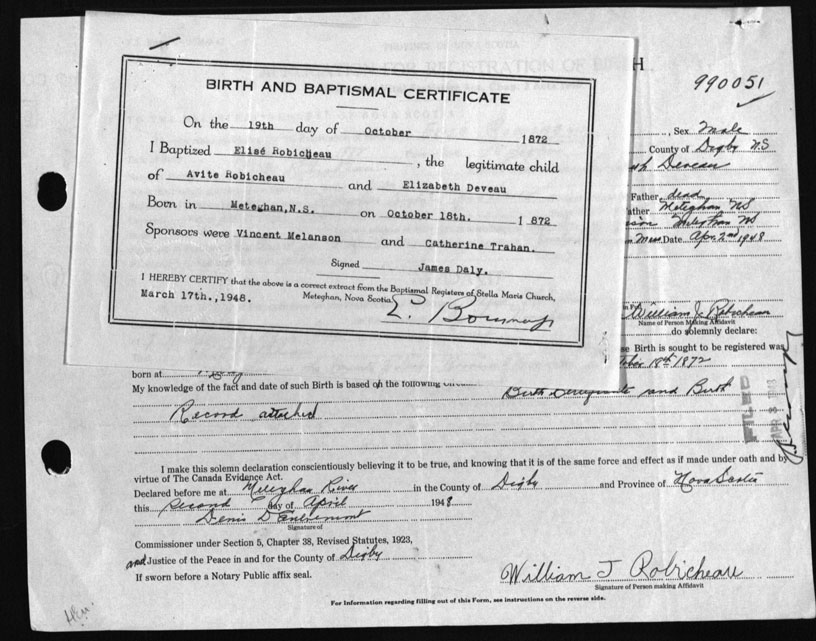 BIRTH AND BAPTISMAL CERTIFICATE
On the 19th day of October 1872
I Baptized Elisé Robicheau , the legitimate child
of Avite Robicheau and Elizabeth Deveau
Born in Meteghan, N.S. on October 18th. 1872
Sponsors were Vincent Melanson and Catherine Trahan.
Signed James Daly.
I HEREBY CERTIFY that the above is a correct extract from the Baptismal Registers of Stella Maris Church,
March 17th., 1948. Meteghan, Nova Scotia
H
990051
, Sex Male
County of Digby N.S
Deveau
Father, dead
Meteghan NS
Meteghan NS
Date Apr 2nd 1948
William J. Robicheau
Name of Person Making Affidavit
do solemnly declare:
se Birth is sought to be registered was
18th 1872
born at
My knowledge of the fact and date of such Birth is based on the following
and Birth
Record attached
FILED
I make this solemn declaration conscientiously believing it to be true, and knowing that it is of the same force and effect as if made under oath and by
virtue of The Canada Evidence Act.
Declared before me at Meteghan River in the County of Digby and Province of Nova Scotia
this second day of April 1948
Denis D'Entremont
Signature of
Commissioner under Section 5, Chapter 38, Revised Statutes, 1923,
and Justice of the Peace in and for the County of Digby
If sworn before a Notary Public affix seal.
William J Robicheau
Signature of Person making Affidavit
For Information regarding filling out of this Form, see instructions on the reverse side.